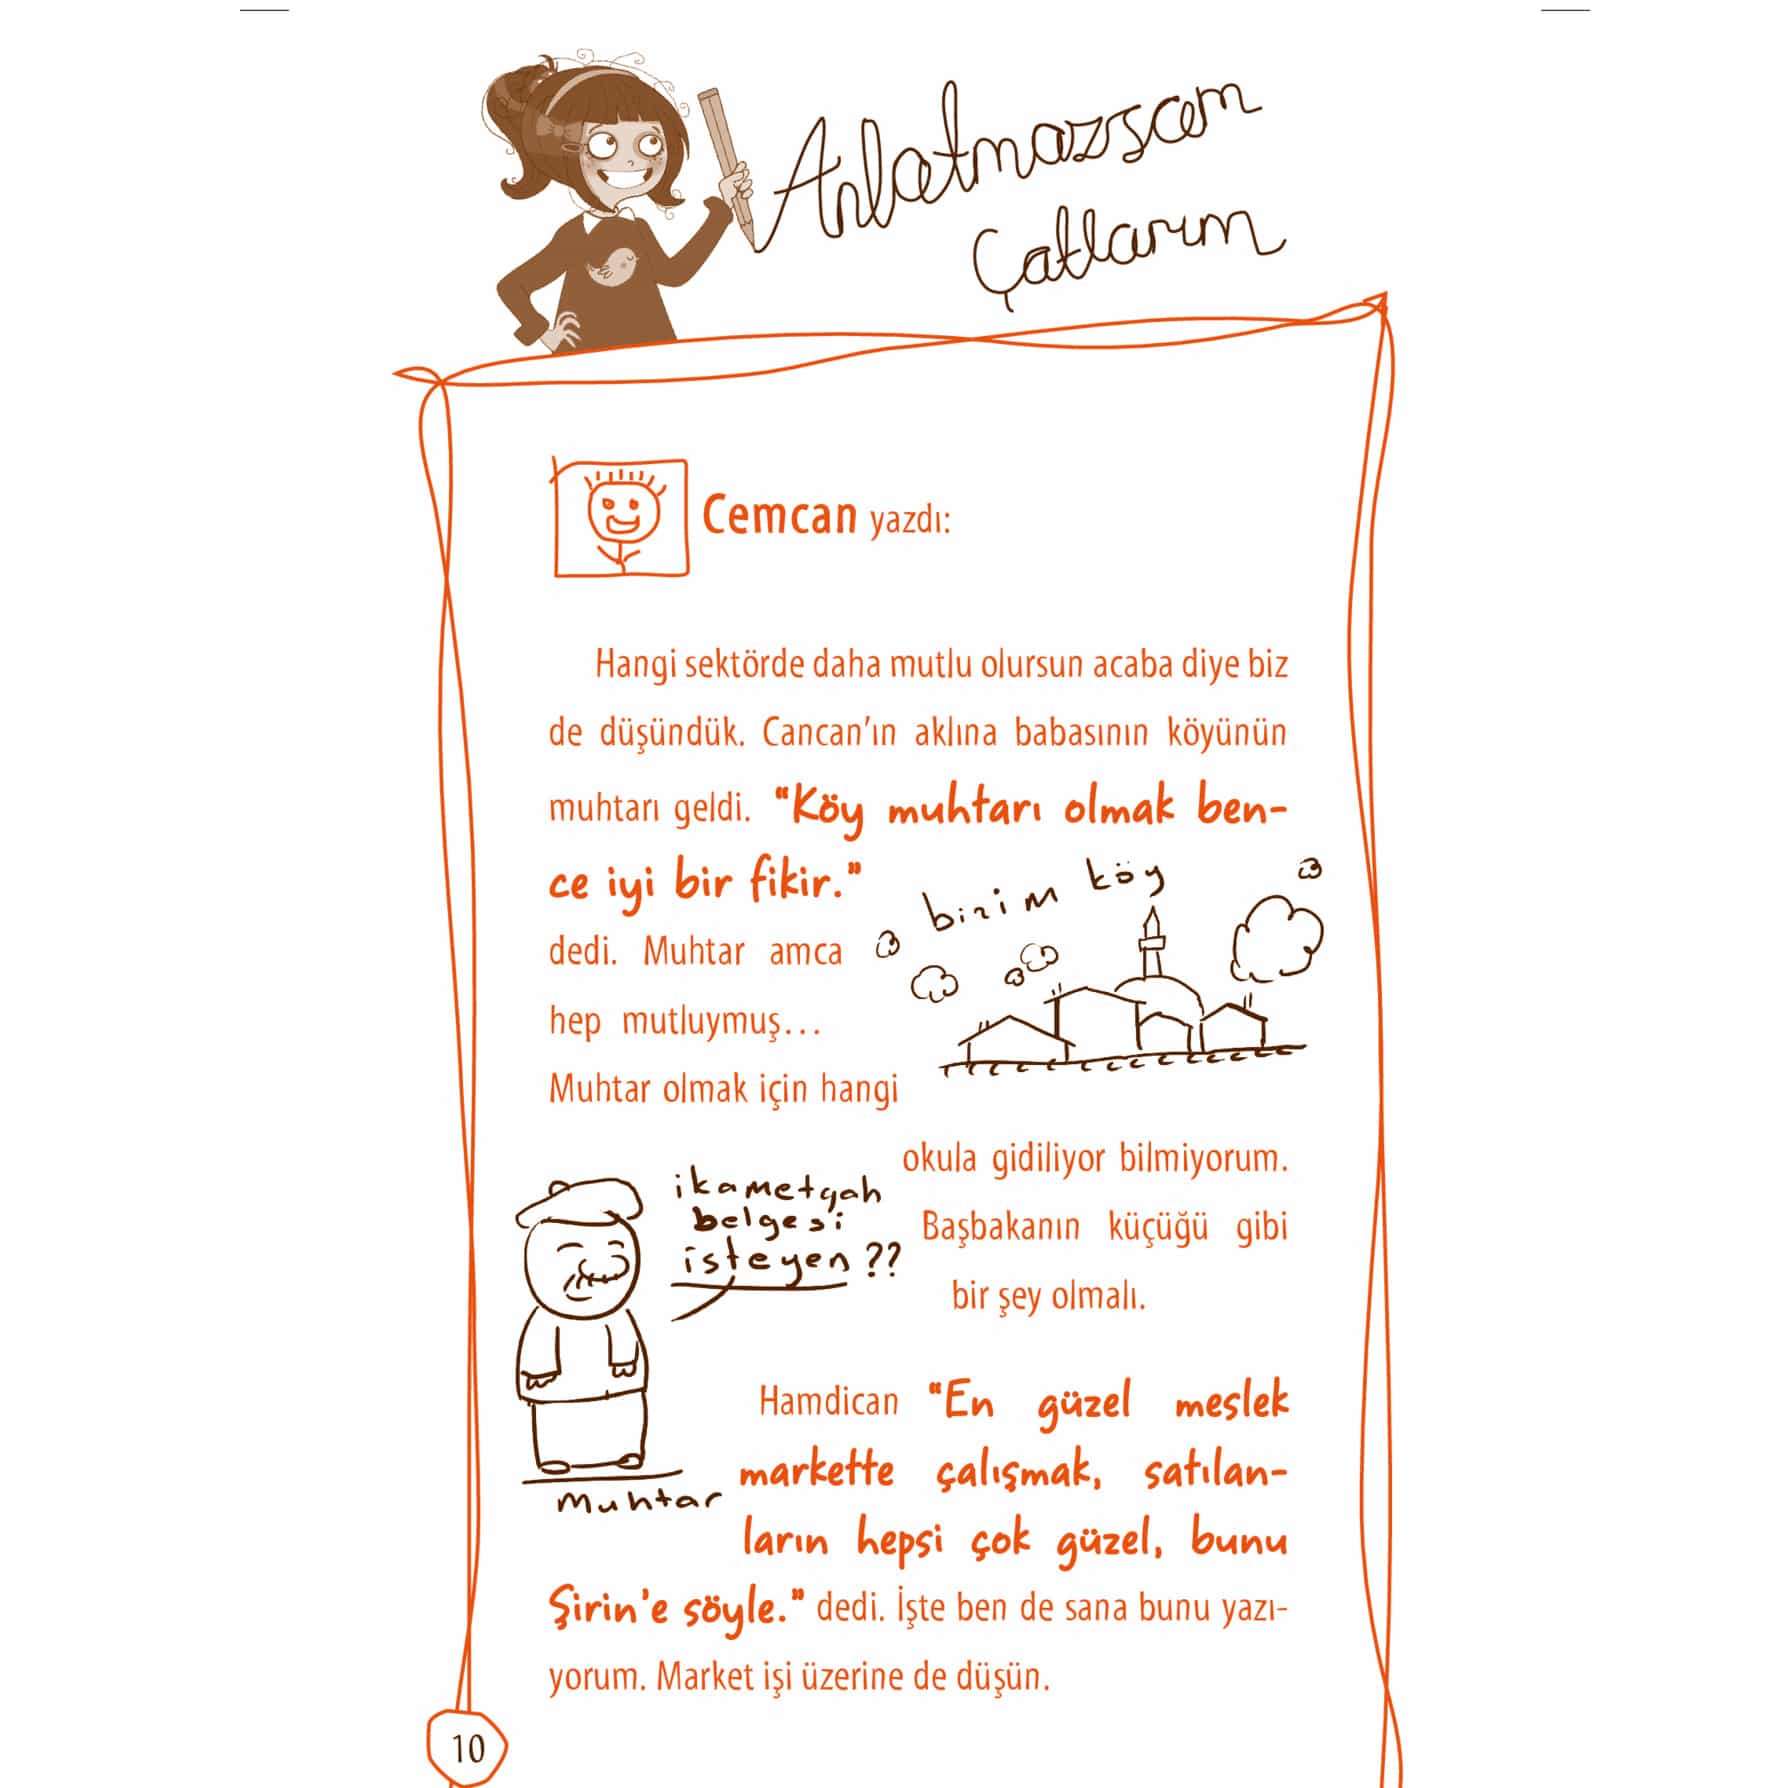 Anlatmazsam
Çatlarım
Cemcan yazdı:
Hangi sektörde daha mutlu olursun acaba diye biz
de düşündük. Cancan’ın aklına babasının köyünün
muhtarı geldi. “Köy muhtarı olmak ben-
ce iyi bir fikir.”
bizim köy
dedi. Muhtar amca
hep mutluymuş...
Muhtar olmak için hangi
okula gidiliyor bilmiyorum.
Başbakanın küçüğü gibi
bir şey olmalı.
ikametgah
belgesi
isteyen ??
Muhtar
Hamdican “En güzel meslek
markette çalışmak, satılan-
ların hepsi çok güzel, bunu
Şirin’e söyle.” dedi. İşte ben de sana bunu yazı-
yorum. Market işi üzerine de düşün.
10